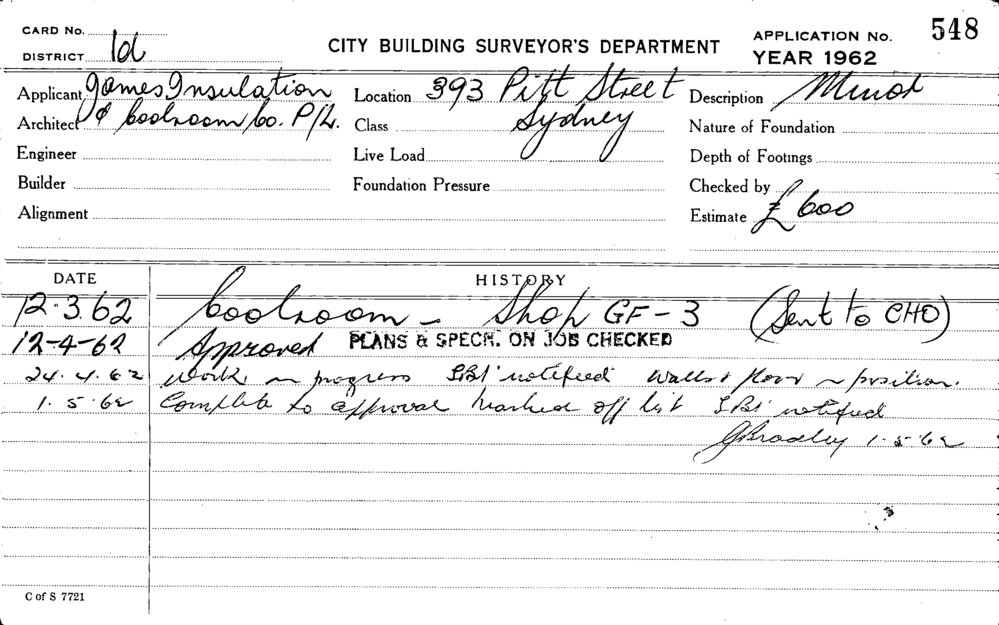 CARD No.
DISTRICT 1d
CITY BUILDING SURVEYOR'S DEPARTMENT
APPLICATION No. 548
YEAR 1962
Applicant James Insulation
Location 393 Pitt Street
Description Minor
Architect & Coolroom Co. P/L.
Class Sydney
Nature of Foundation
Engineer
Live Load
Depth of Footings
Builder
Foundation Pressure
Checked by
Alignment
Estimate £ 600
DATE HISTORY
12.3.62 Coolroom - Shop GF-3 (Sent to CHO)
12-4-62 Approved PLANS & SPECN. ON JOB CHECKED
24.4.62 Work in progress notified Walls & floor in position.
1.5.62 Complete to approval Marked off list notified
GBradley 1-5-62
C of S 7721